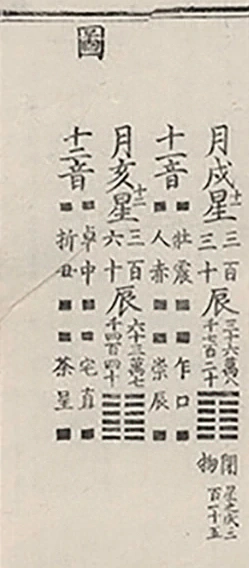 圖
月戌星十一三百三十辰三十六萬八千七百二十
閉物星之戌三百一十五
十一音■莊震■乍□
■人赤■崇辰■
月亥星十二三百六十辰六十三萬七千四百四十
十二音■卓中■宅直■
■坼丑■茶呈■